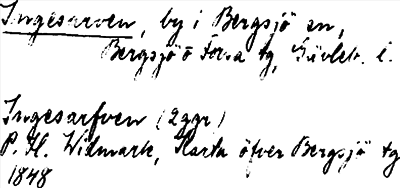 Ingesarven, by i Bergsjö sn,
Bergsjö o Forsa tg, Gävleb. l.
Ingesarfven (2ggr)
P. H. Widmark, Karta öfver Bergsjö tg
1848